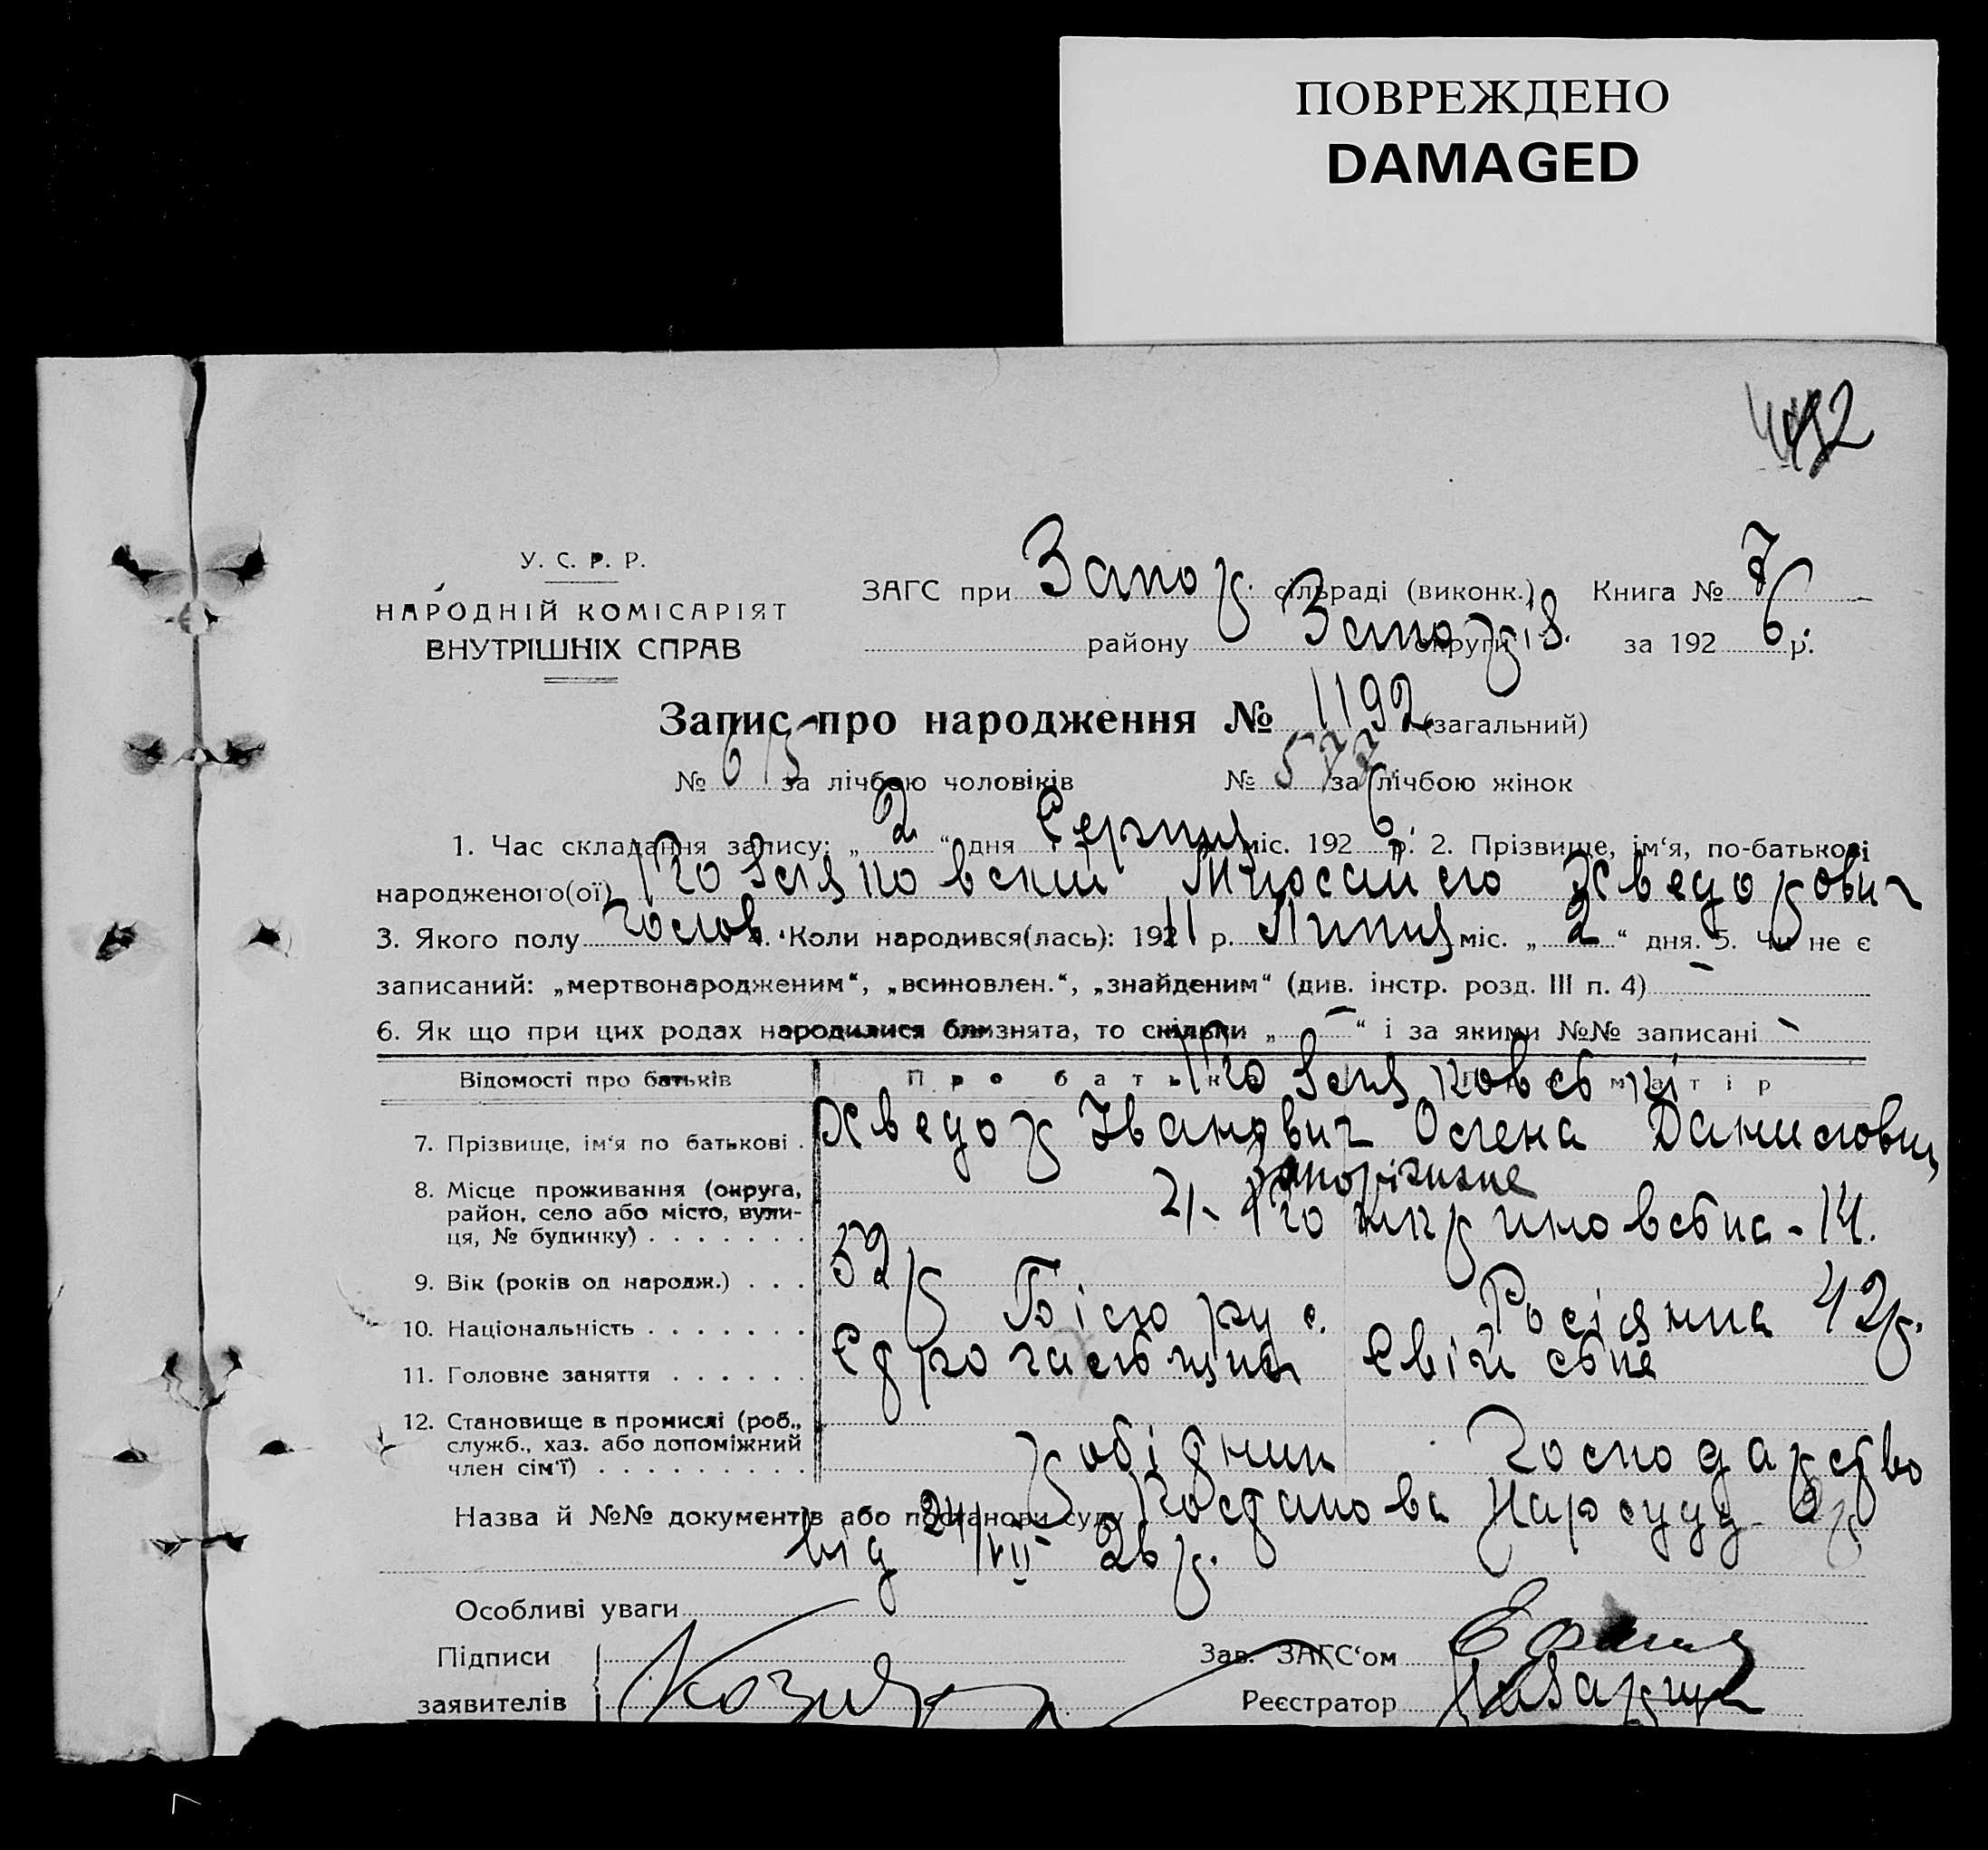 ПОВРЕЖДЕНО
DAMAGED
У. С. Р. Р.
НАРОДНІЙ КОМІСАРІЯТ
ВНУТРІШНІХ СПРАВ
ЗАГС при Запор. сільраді (виконк.) Книга № 7
району Запоріз. округи за 192 6 р.
Запис про народження № 1192 (загальний)
№ 615 за лічбою чоловіків № 577 за лічбою жінок
1. Час складання запису: „ 2 “ дня Серпня міс. 192 6 р. 2. Прізвище, ім‘я, по-батькові
народженого(ої) Хведорович
3. Якого полу чолов. 4. Коли народився(лась): 19211 р. Липня міс. „ 2 “ дня. 5. Чи не є
записаний: „мертвонародженим“, „всиновлен.“, „знайденим“ (див. інстр. розд. III п. 4) –
6. Як що при цих родах народилися близнята, то скільки „ – “ і за якими №№ записані –
Відомості про батьків Про батька Про матір
7. Прізвище, ім‘я по батькові . Хведор Іванович Олена Данилови
8. Місце проживання (округа, район, село або місто, вули-ця, № будинку) . . . . . . . Запоріжжя
9. Вік (років од народж.) . . . 52 р 42 р.
10. Національність . . . . . . . Білорус. Росіянка
11. Головне заняття . . . . . .
12. Становище в промислі (роб., служб., хаз. або допоміжний член сім‘ї) . . . . . . . . . робідник Господарство
Назва й №№ документів або постанови суду Постанова Нарсуду
від 24/VII 26 р.
Особливі уваги
Підписи
заявителів
Зав. ЗАГС‘ом
Реєстратор